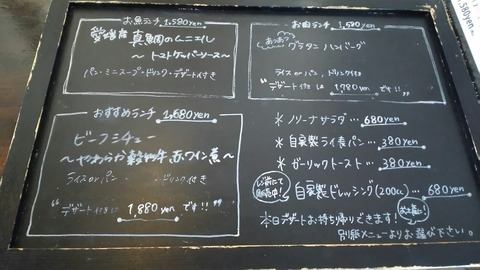 お魚ランチ 1,580yen
愛媛産 真鯛のムニエル
～トマトケッパーソース～
パン・ミニスープ・ドリンク・デザート付き
お肉ランチ 1,580yen
グラタン ハンバーグ
ライス or パン ドリンク付き
"デザート付きは 1,780yen です!!"
おすすめランチ 1,680yen
ビーフシチュー
～やわらか 牛 赤ワイン煮～
ライス or パン ドリンク付き
"デザート付きは 1,880yen です!!"
* ノリーナサラダ… 680yen
* 自家製ライ麦パン… 380yen
* ガーリックトースト… 380yen
自家製ドレッシング(200cc)… 680yen
本日デザートお持ち帰りできます!
別紙メニューよりお選び下さい。